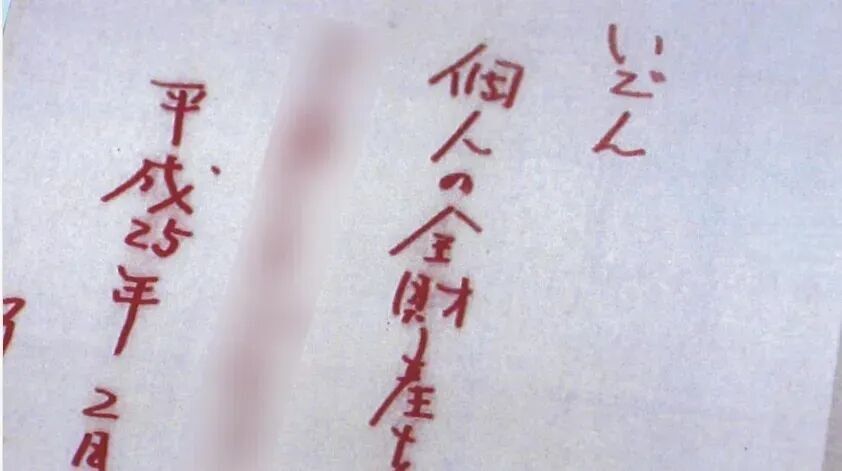 いごん
個人の全財産
平成25年2月